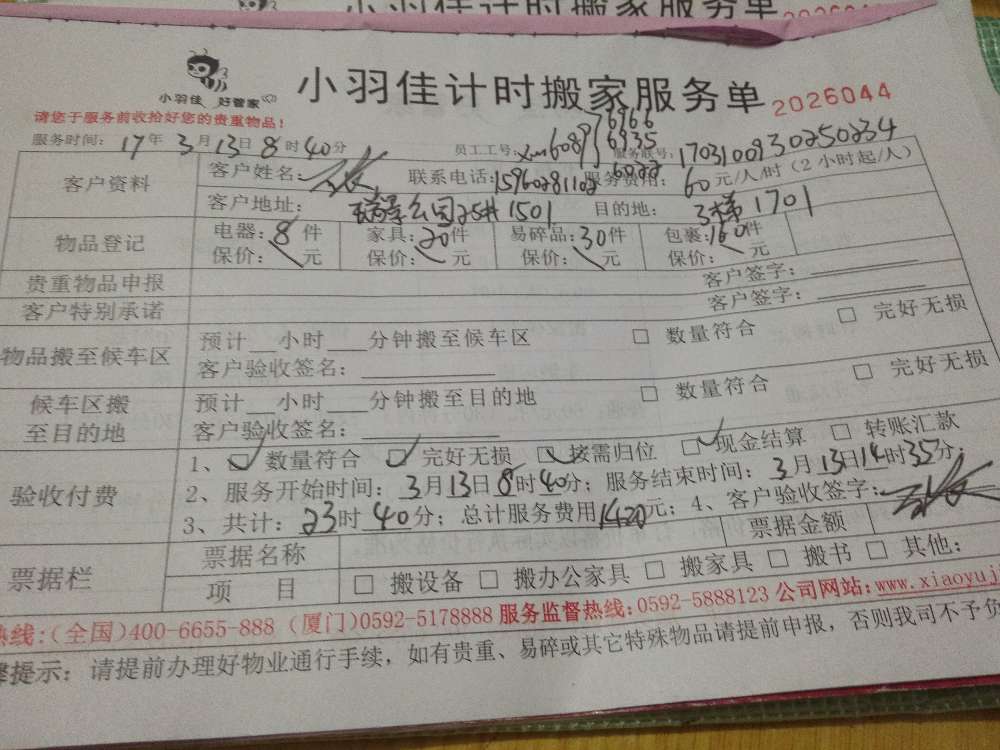 小羽佳计时搬家服务单
2026044
小羽佳 好管家
小羽佳计时搬家服务单
2026044
请您于服务前收拾好您的贵重物品!
服务时间: 17年 3月13日8时40分 员工工号: xm6089 6966 6935 服务联号: 1703100930250234
客户资料 客户姓名: 联系电话: 15960281102 服务费用: 60元/人/时(2小时起/人)
客户地址: 瑞景公园25# 1501 目的地: 3梯1701
物品登记 电器: 8件 家具: 20件 易碎品: 30件 包裹: 160件
保价: 元 保价: 元 保价: 元 保价: 元
贵重物品申报 客户签字:
客户特别承诺 客户签字:
物品搬至候车区 预计__小时___分钟搬至候车区 □ 数量符合 □ 完好无损
客户验收签名:
候车区搬至目的地 预计__小时___分钟搬至目的地 □ 数量符合 □ 完好无损
客户验收签名:
验收付费 1、☑ 数量符合 ☑ 完好无损 ☑ 按需归位 ☑ 现金结算 □ 转账汇款
2、服务开始时间: 3月13日8时40分; 服务结束时间: 3月13日14时35分;
3、共计: 23时40分; 总计服务费用1420元; 4、客户验收签字:
票据栏 票据名称 票据金额
项 目 □ 搬设备 □ 搬办公家具 □ 搬家具 □ 搬书 □ 其他:
热线:(全国)400-6655-888 (厦门)0592-5178888 服务监督热线:0592-5888123 公司网站: www.xiaoyuj
提示: 请提前办理好物业通行手续,如有贵重、易碎或其它特殊物品请提前申报,否则我司不予负